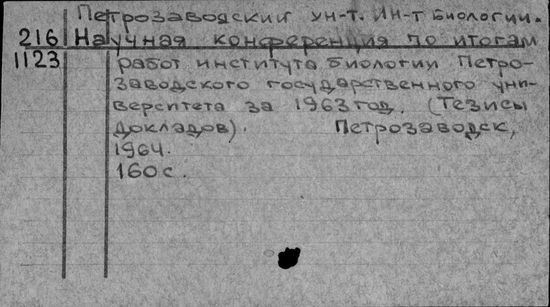 Петрозаводский ун-т. Ин-т биологии.
216 Научная конференция по итогам
1123 работ института биологии Петро-
заводского государственного уни-
верситета за 1963 год. (Тезисы
докладов). Петрозаводск,
1964.
160 с.